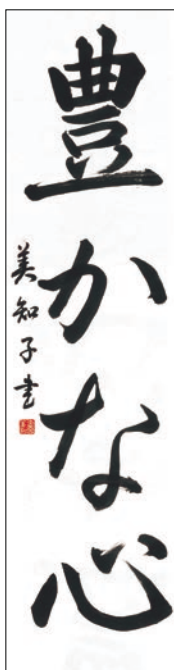 豊かな心
美知子書